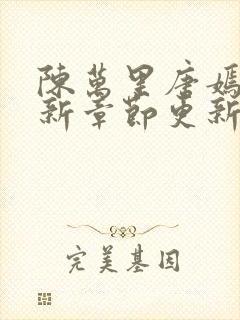 陳萬里唐嫣
新章節更新
完美基因